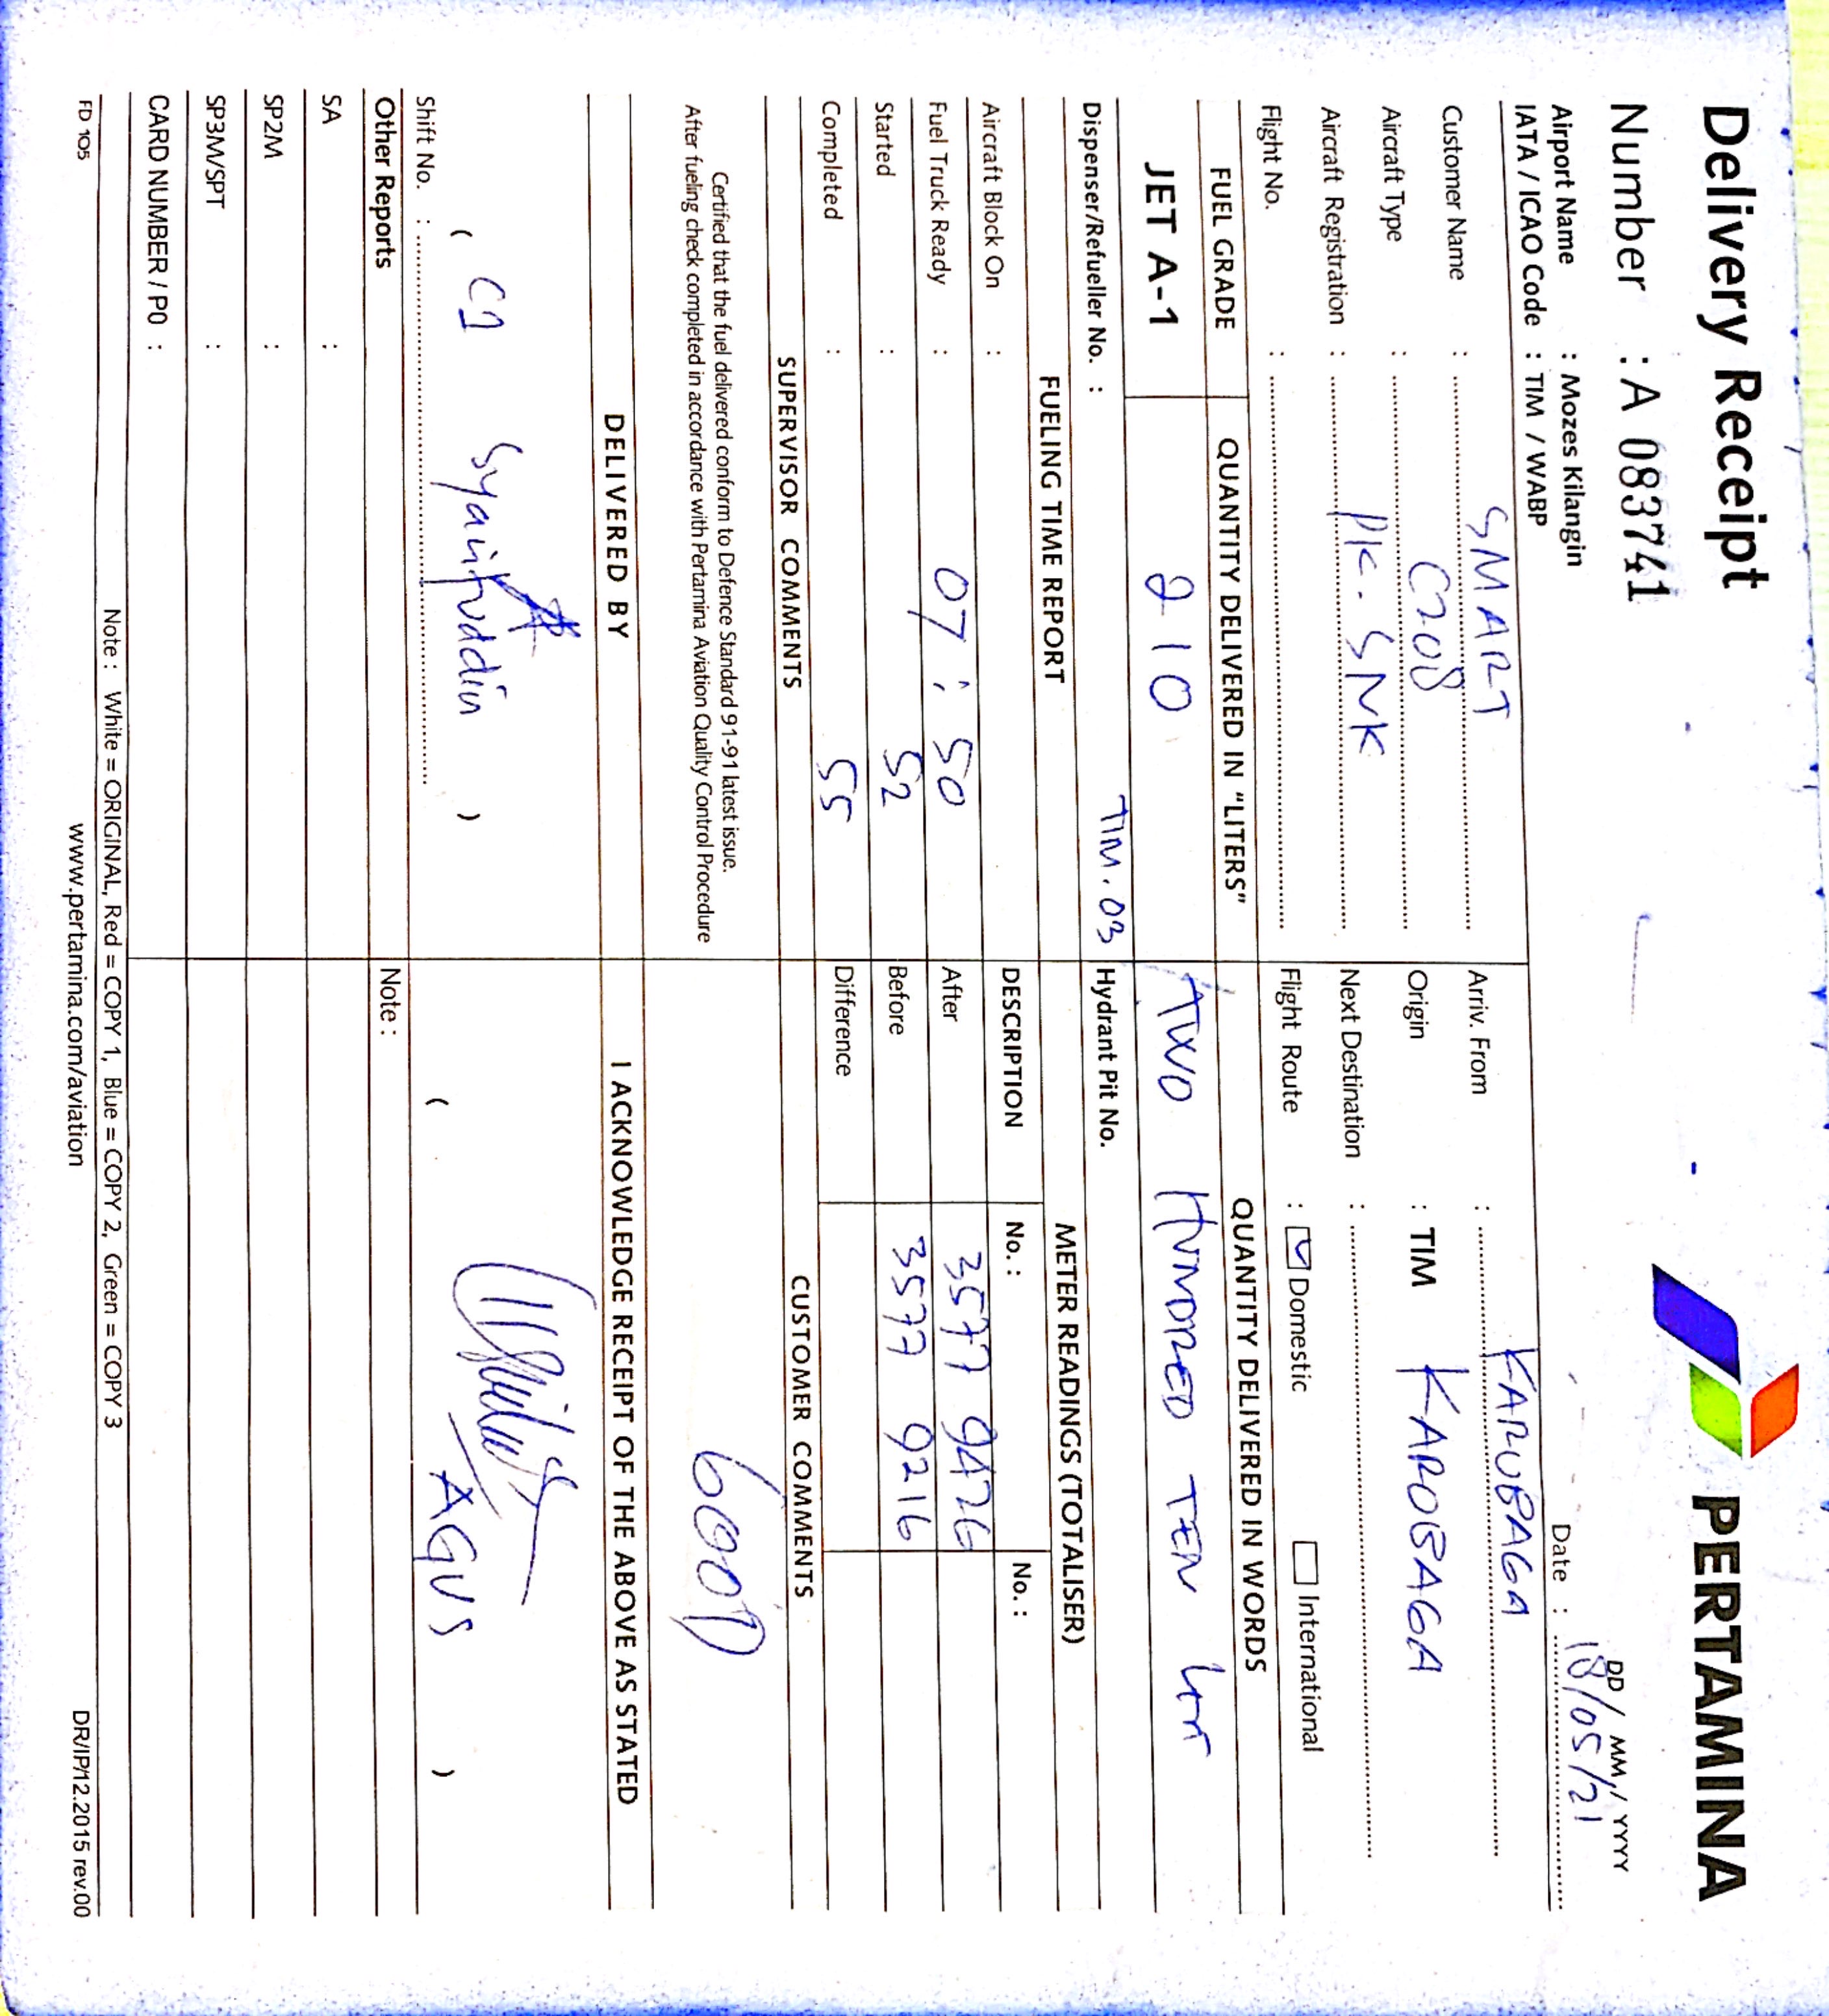 Delivery Receipt
PERTAMINA
Number : A 083741
DD / MM / YYYY
Airport Name : Mozes Kilangin
Date : 18/05/21
IATA / ICAO Code : TIM / WABP
Customer Name : SMART
Arriv. From : KARUBAGA
Aircraft Type : C208
Origin : TIM KAROBAGA
Aircraft Registration : PK. SNK
Next Destination :
Flight No. :
Flight Route : Domestic International
FUEL GRADE QUANTITY DELIVERED IN "LITERS" QUANTITY DELIVERED IN WORDS
JET A-1 210 TWO HUNDRED TEN Ltr
Dispenser/Refueller No. : TIM.03 Hydrant Pit No.
FUELING TIME REPORT METER READINGS (TOTALISER)
Aircraft Block On : DESCRIPTION No. : No. :
Fuel Truck Ready : 07 : 50 After 3577 9426
Started : 52 Before 3577 9216
Completed : 55 Difference
SUPERVISOR COMMENTS CUSTOMER COMMENTS
Certified that the fuel delivered conform to Defence Standard 91-91 latest issue.
After fueling check completed in accordance with Pertamina Aviation Quality Control Procedure
GOOD
DELIVERED BY I ACKNOWLEDGE RECEIPT OF THE ABOVE AS STATED
( C1 Syaifuddin ) ( AGUS )
Shift No. :
Other Reports Note :
SA :
SP2M :
SP3M/SPT :
CARD NUMBER / PO :
Note : White = ORIGINAL, Red = COPY 1, Blue = COPY 2, Green = COPY 3
FD 105 www.pertamina.com/aviation DR/IP/12.2015 rev.00